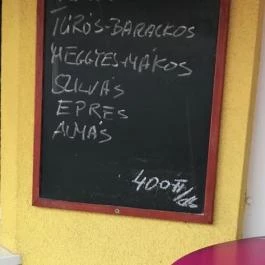 TÚRÓS-BARACKOS
MEGGYES-MÁKOS
SZILVÁS
EPRES
ALMÁS
400 Ft/db